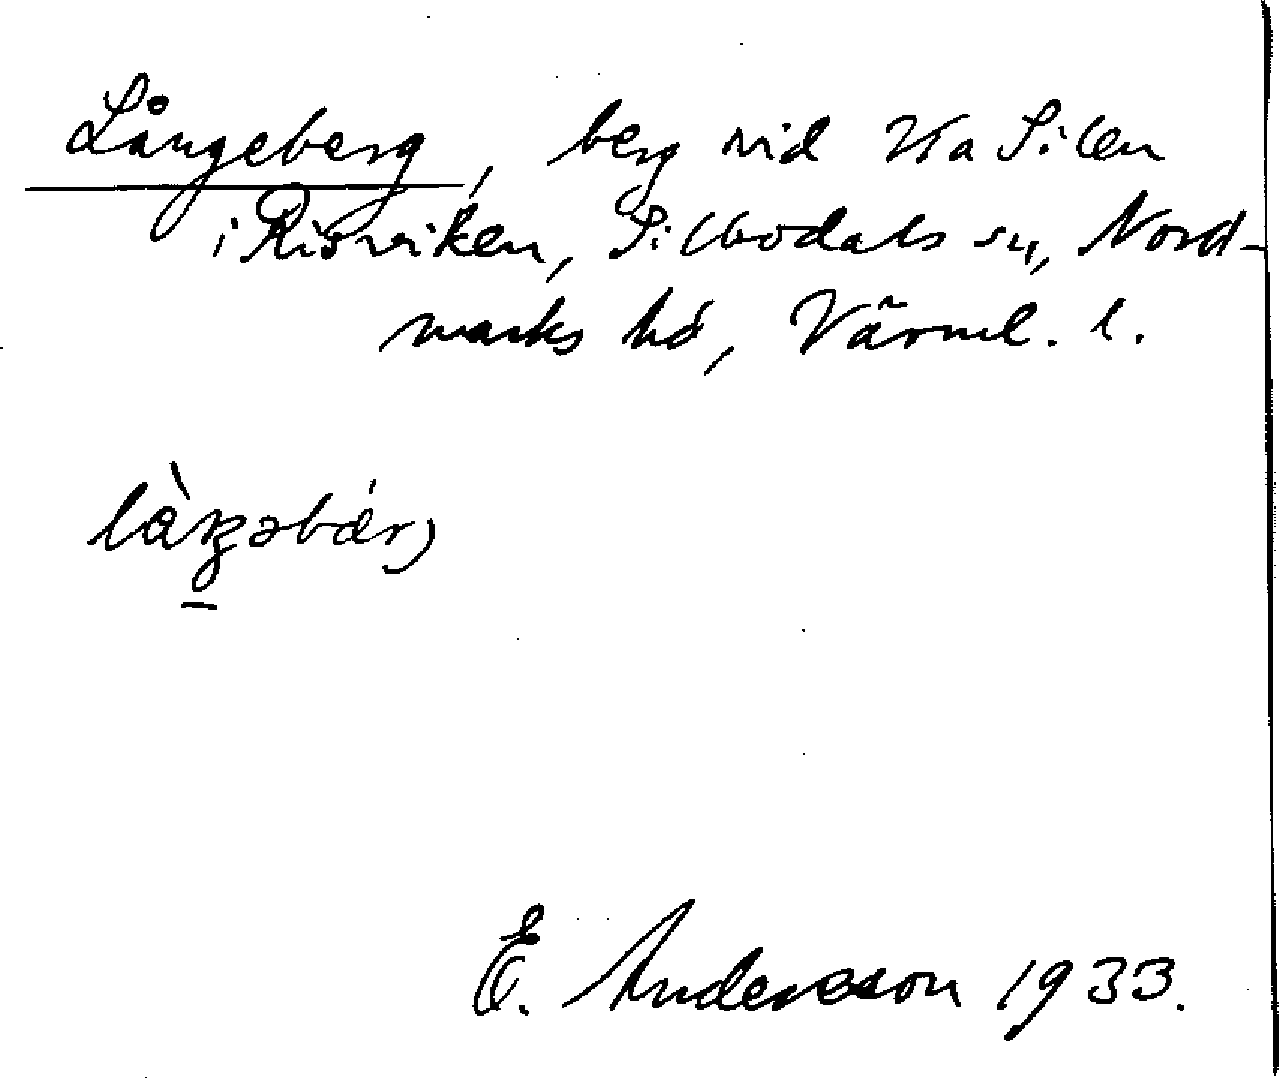 Långeberg, berg vid V:a Silen
i Risviken, Silbodals sn, Nord-
marks hd, Värml. l.
E. Andersson 1933.